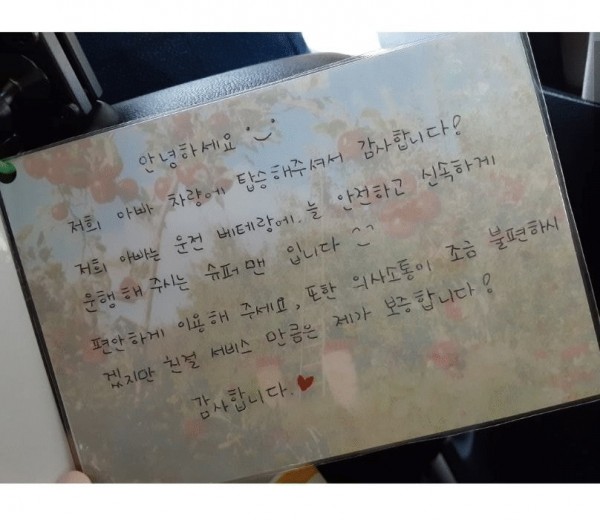 안녕하세요 ◡̈
저희 아빠 차량에 탑승해주셔서 감사합니다!
저희 아빠는 운전 베테랑에, 늘 안전하고 신속하게
운행해 주시는 슈퍼맨 입니다 ^^
편안하게 이용해 주세요, 또한 의사소통이 조금 불편하시
겠지만 친절 서비스 만큼은 제가 보증합니다!
감사합니다.♥